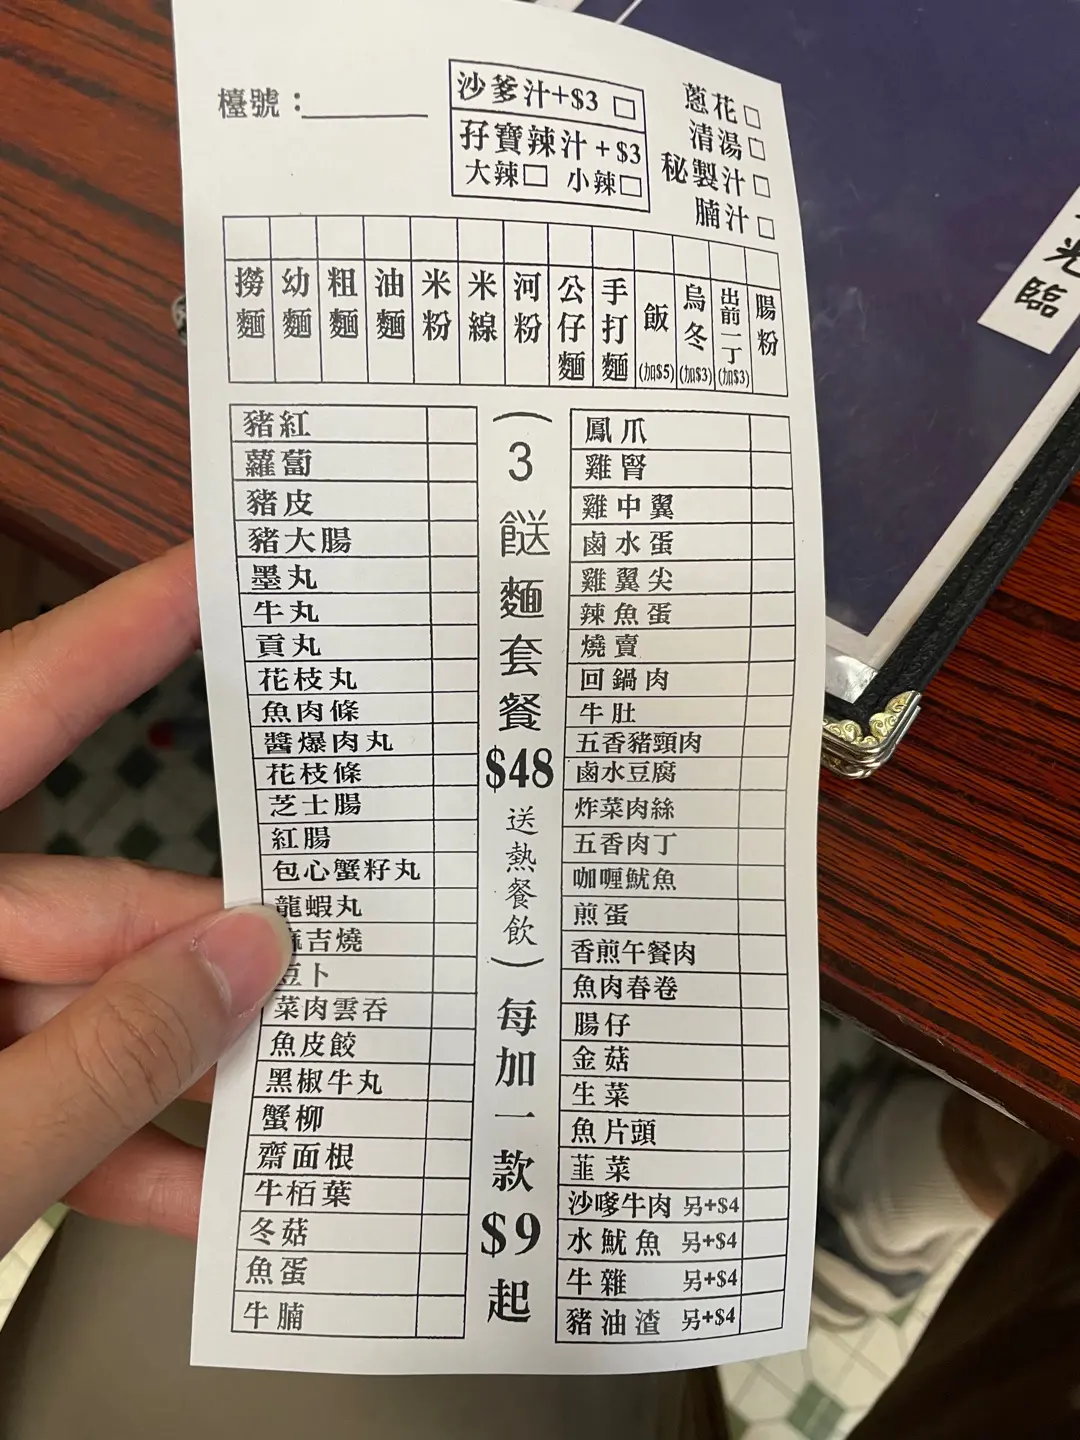 檯號：
沙爹汁+$3 □
孖寶辣汁+$3
大辣□ 小辣□
蔥花□
清湯□
秘製汁□
腩汁□
撈麵
幼麵
粗麵
油麵
米粉
米線
河粉
公仔麵
手打麵
飯(加$5)
烏冬(加$3)
出前一丁(加$3)
腸粉
豬紅
蘿蔔
豬皮
豬大腸
墨丸
牛丸
貢丸
花枝丸
魚肉條
醬爆肉丸
花枝條
芝士腸
紅腸
包心蟹籽丸
龍蝦丸
麻吉燒
豆卜
菜肉雲吞
魚皮餃
黑椒牛丸
蟹柳
齋面根
牛栢葉
冬菇
魚蛋
牛腩
(3餸麵套餐$48送熱餐飲)每加一款$9起
鳳爪
雞腎
雞中翼
鹵水蛋
雞翼尖
辣魚蛋
燒賣
回鍋肉
牛肚
五香豬頸肉
鹵水豆腐
炸菜肉絲
五香肉丁
咖喱魷魚
煎蛋
香煎午餐肉
魚肉春卷
腸仔
金菇
生菜
魚片頭
韮菜
沙嗲牛肉 另+$4
水魷魚 另+$4
牛雜 另+$4
豬油渣 另+$4
光臨